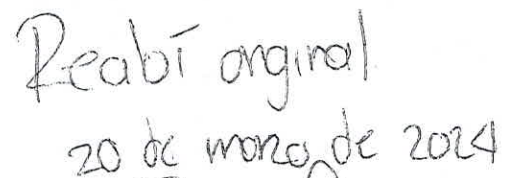 Recibí original
20 de marzo de 2024